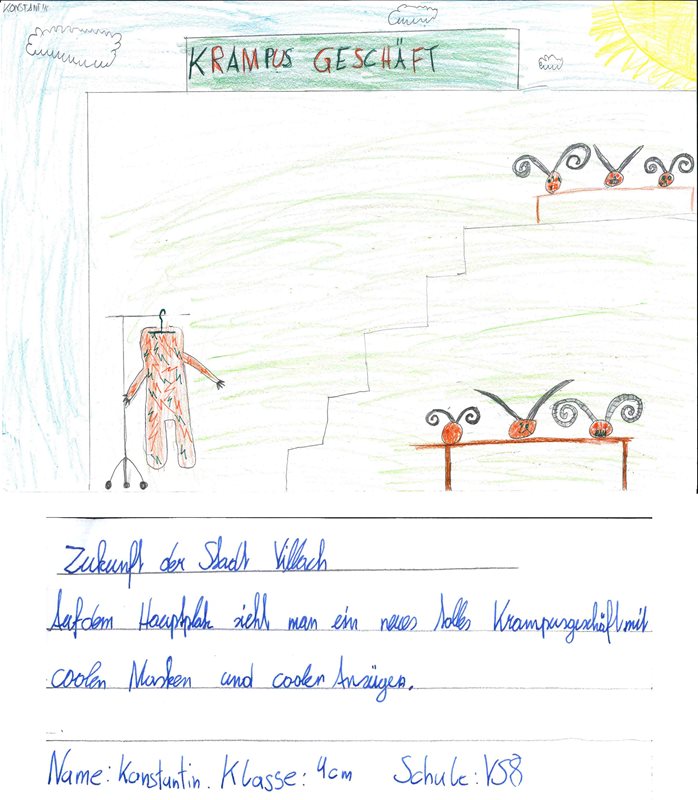 KONSTANTIN
KRAMPUS GESCHÄFT
Zukunft der Stadt Villach
Auf dem Hauptplatz sieht man ein neues tolles Krampusgeschäft mit
coolen Masken und coolen Anzügen.
Name: Konstantin. Klasse: 4cm Schule: VS8